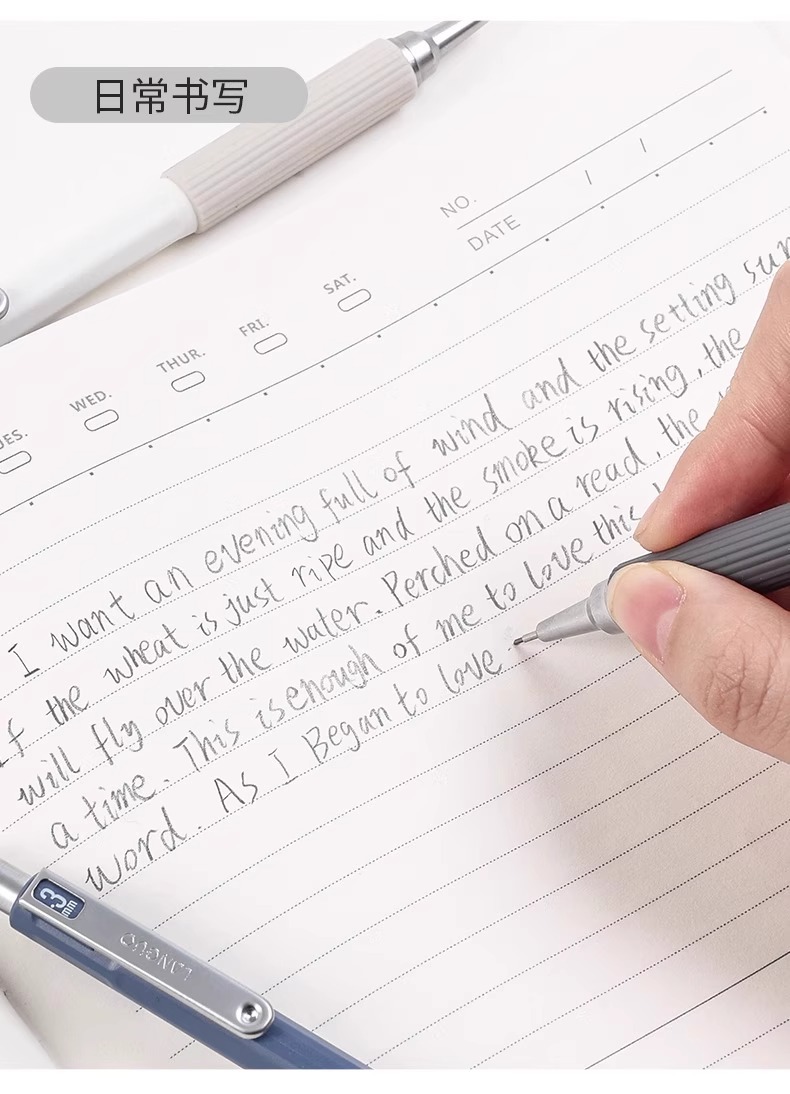 日常书写
NO.
DATE / /
UES. WED. THUR. FRI. SAT.
I want an evening full of wind and the setling sun
If the wheat is just ripe and the smoke is rising, the
will fly over the water. Perched on a read, the
a time. This is enough of me to love this
word. As I Began to love
.3mm
LANGUO